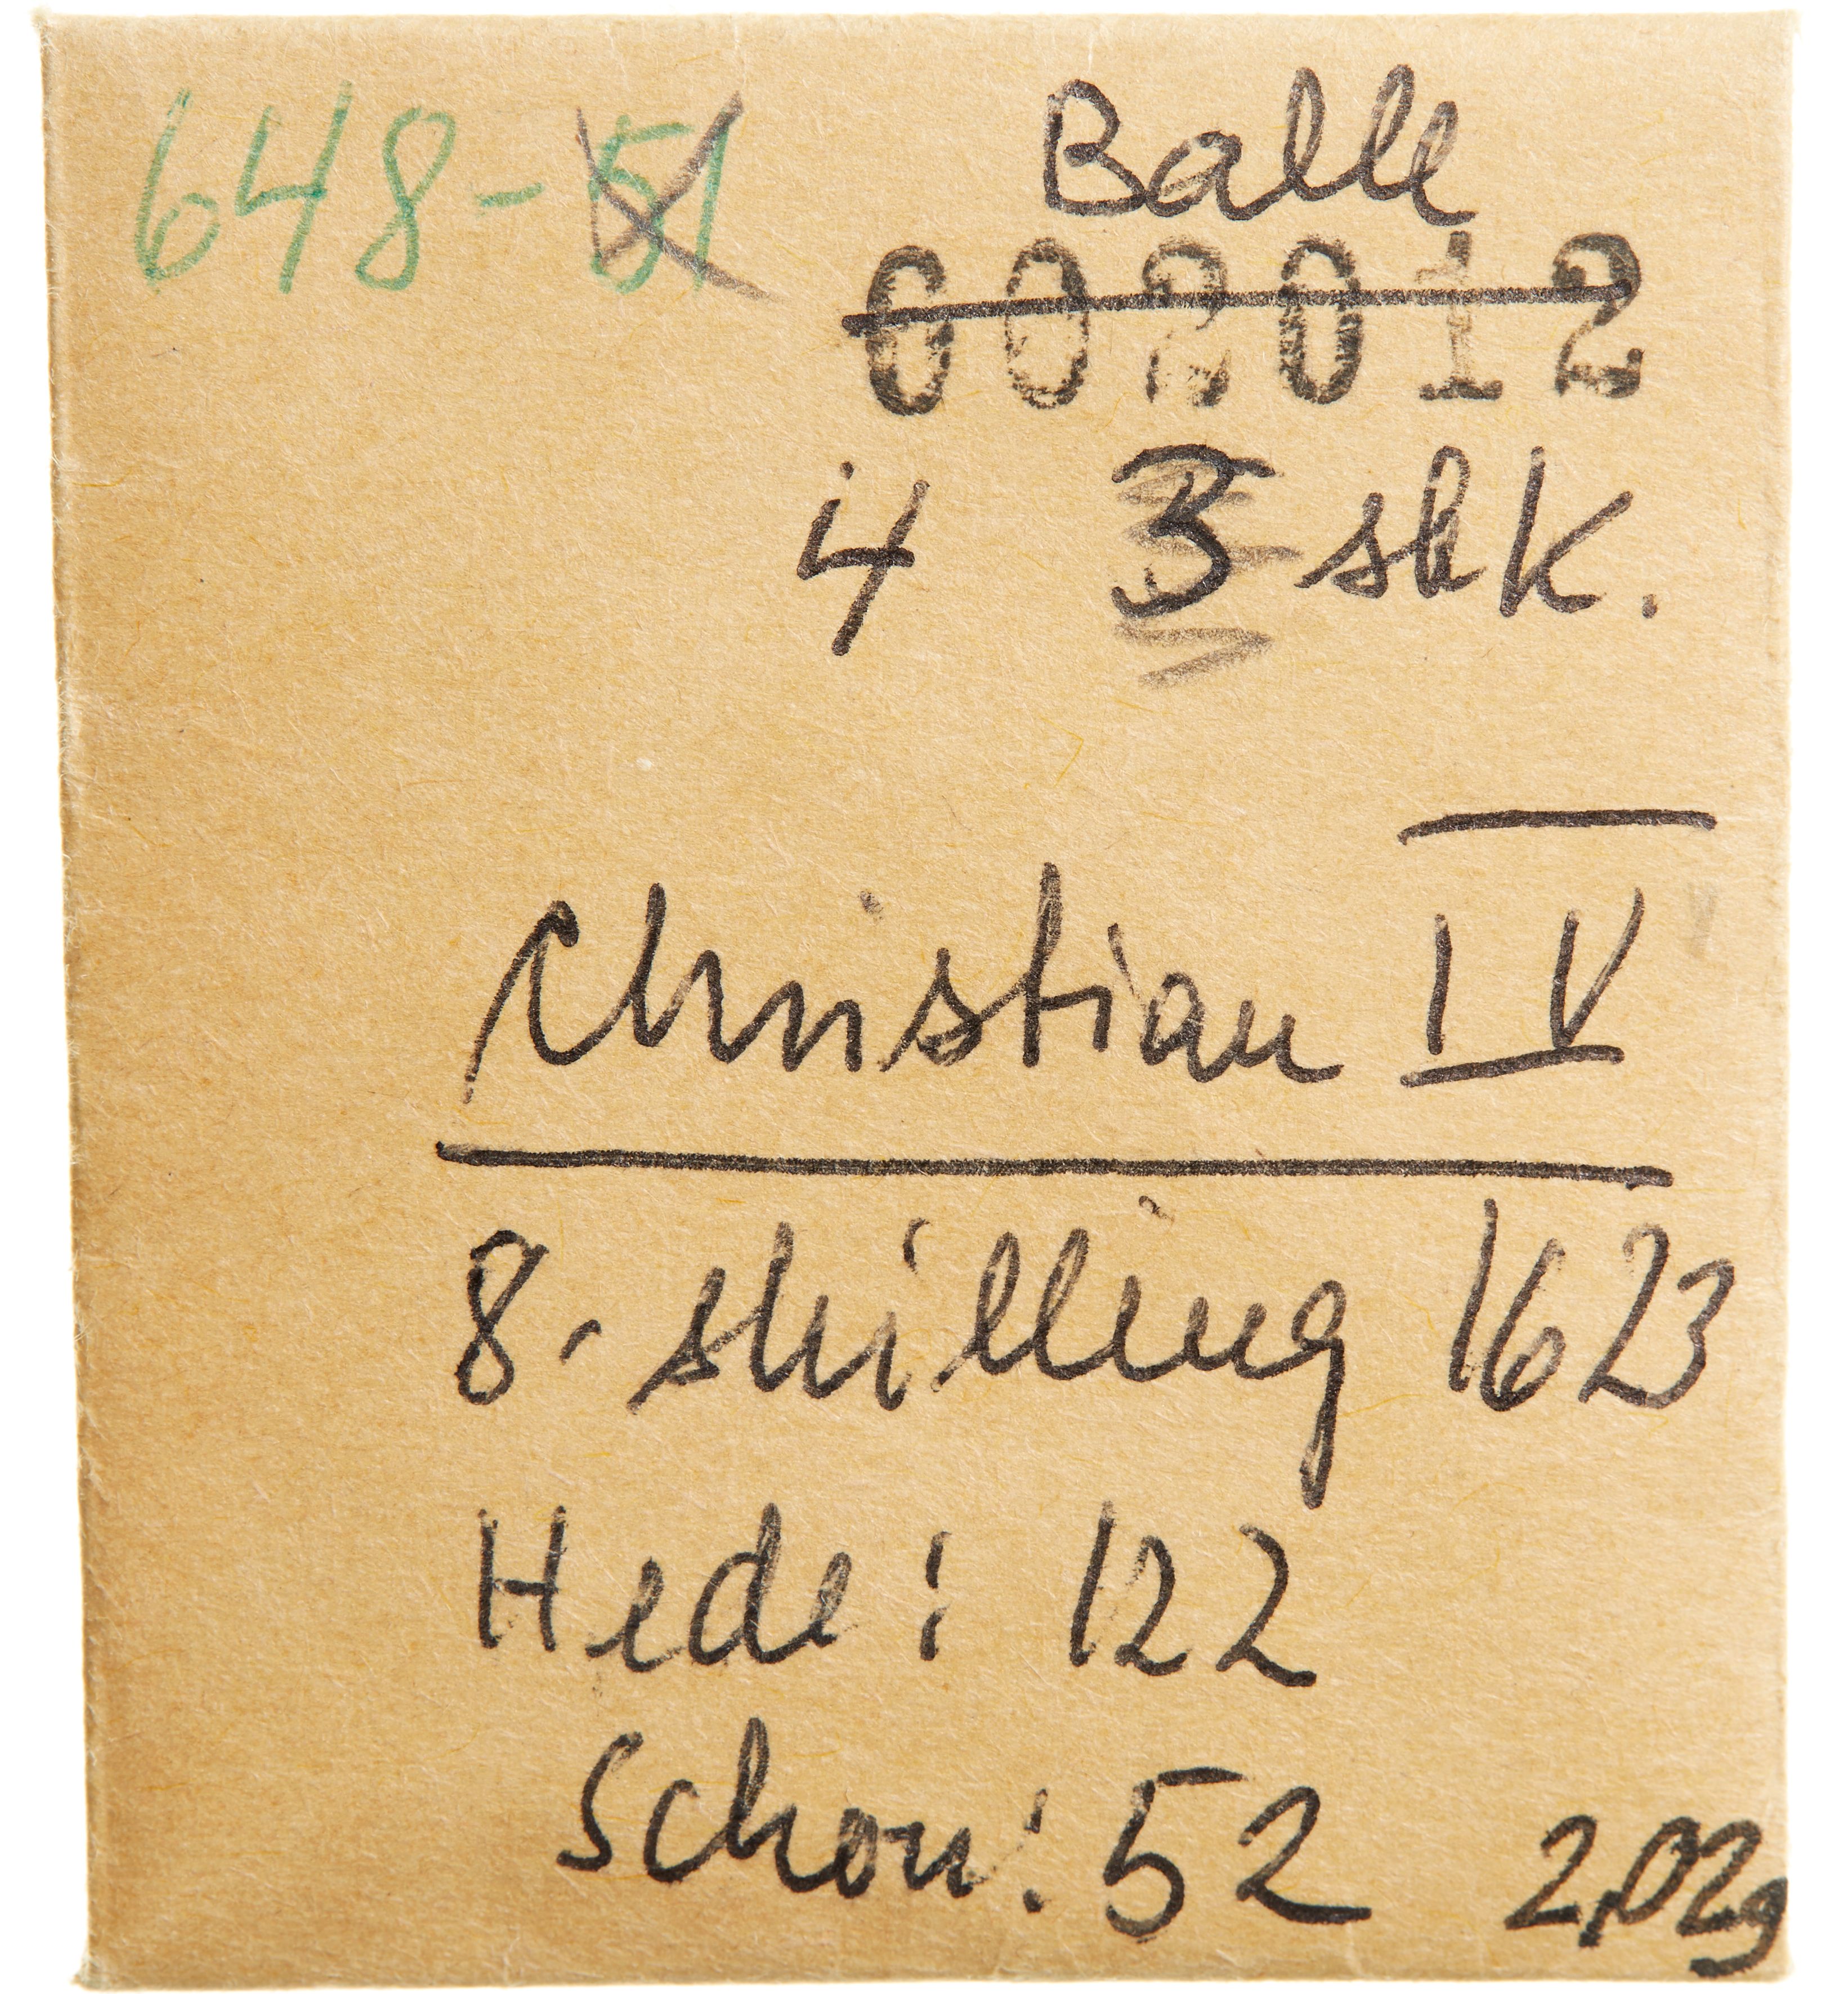 648-51 Balle
002012
4 3 stk.
Christian IV
8. skilling 1623
Hede: 122
Schou: 52 2,02g